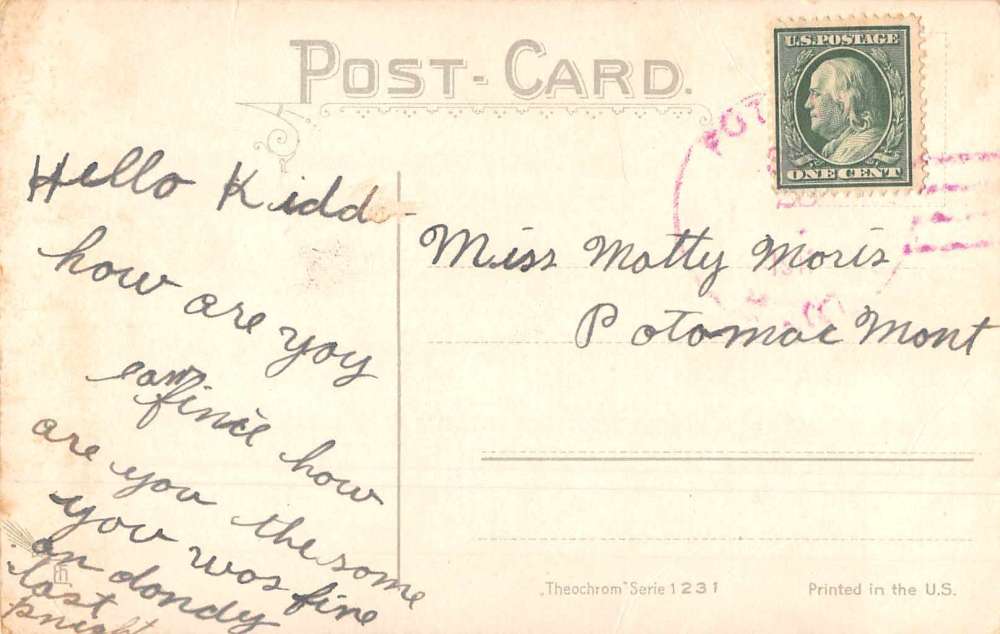 POST-CARD.
U.S. POSTAGE
ONE CENT
POT
Hello Kidd
how are yoy
eam
fince how
are you the some
you was fine
an dondy
last
pnight
Miss Matty Moris
Potomac Mont
„Theochrom" Serie 1231
Printed in the U.S.